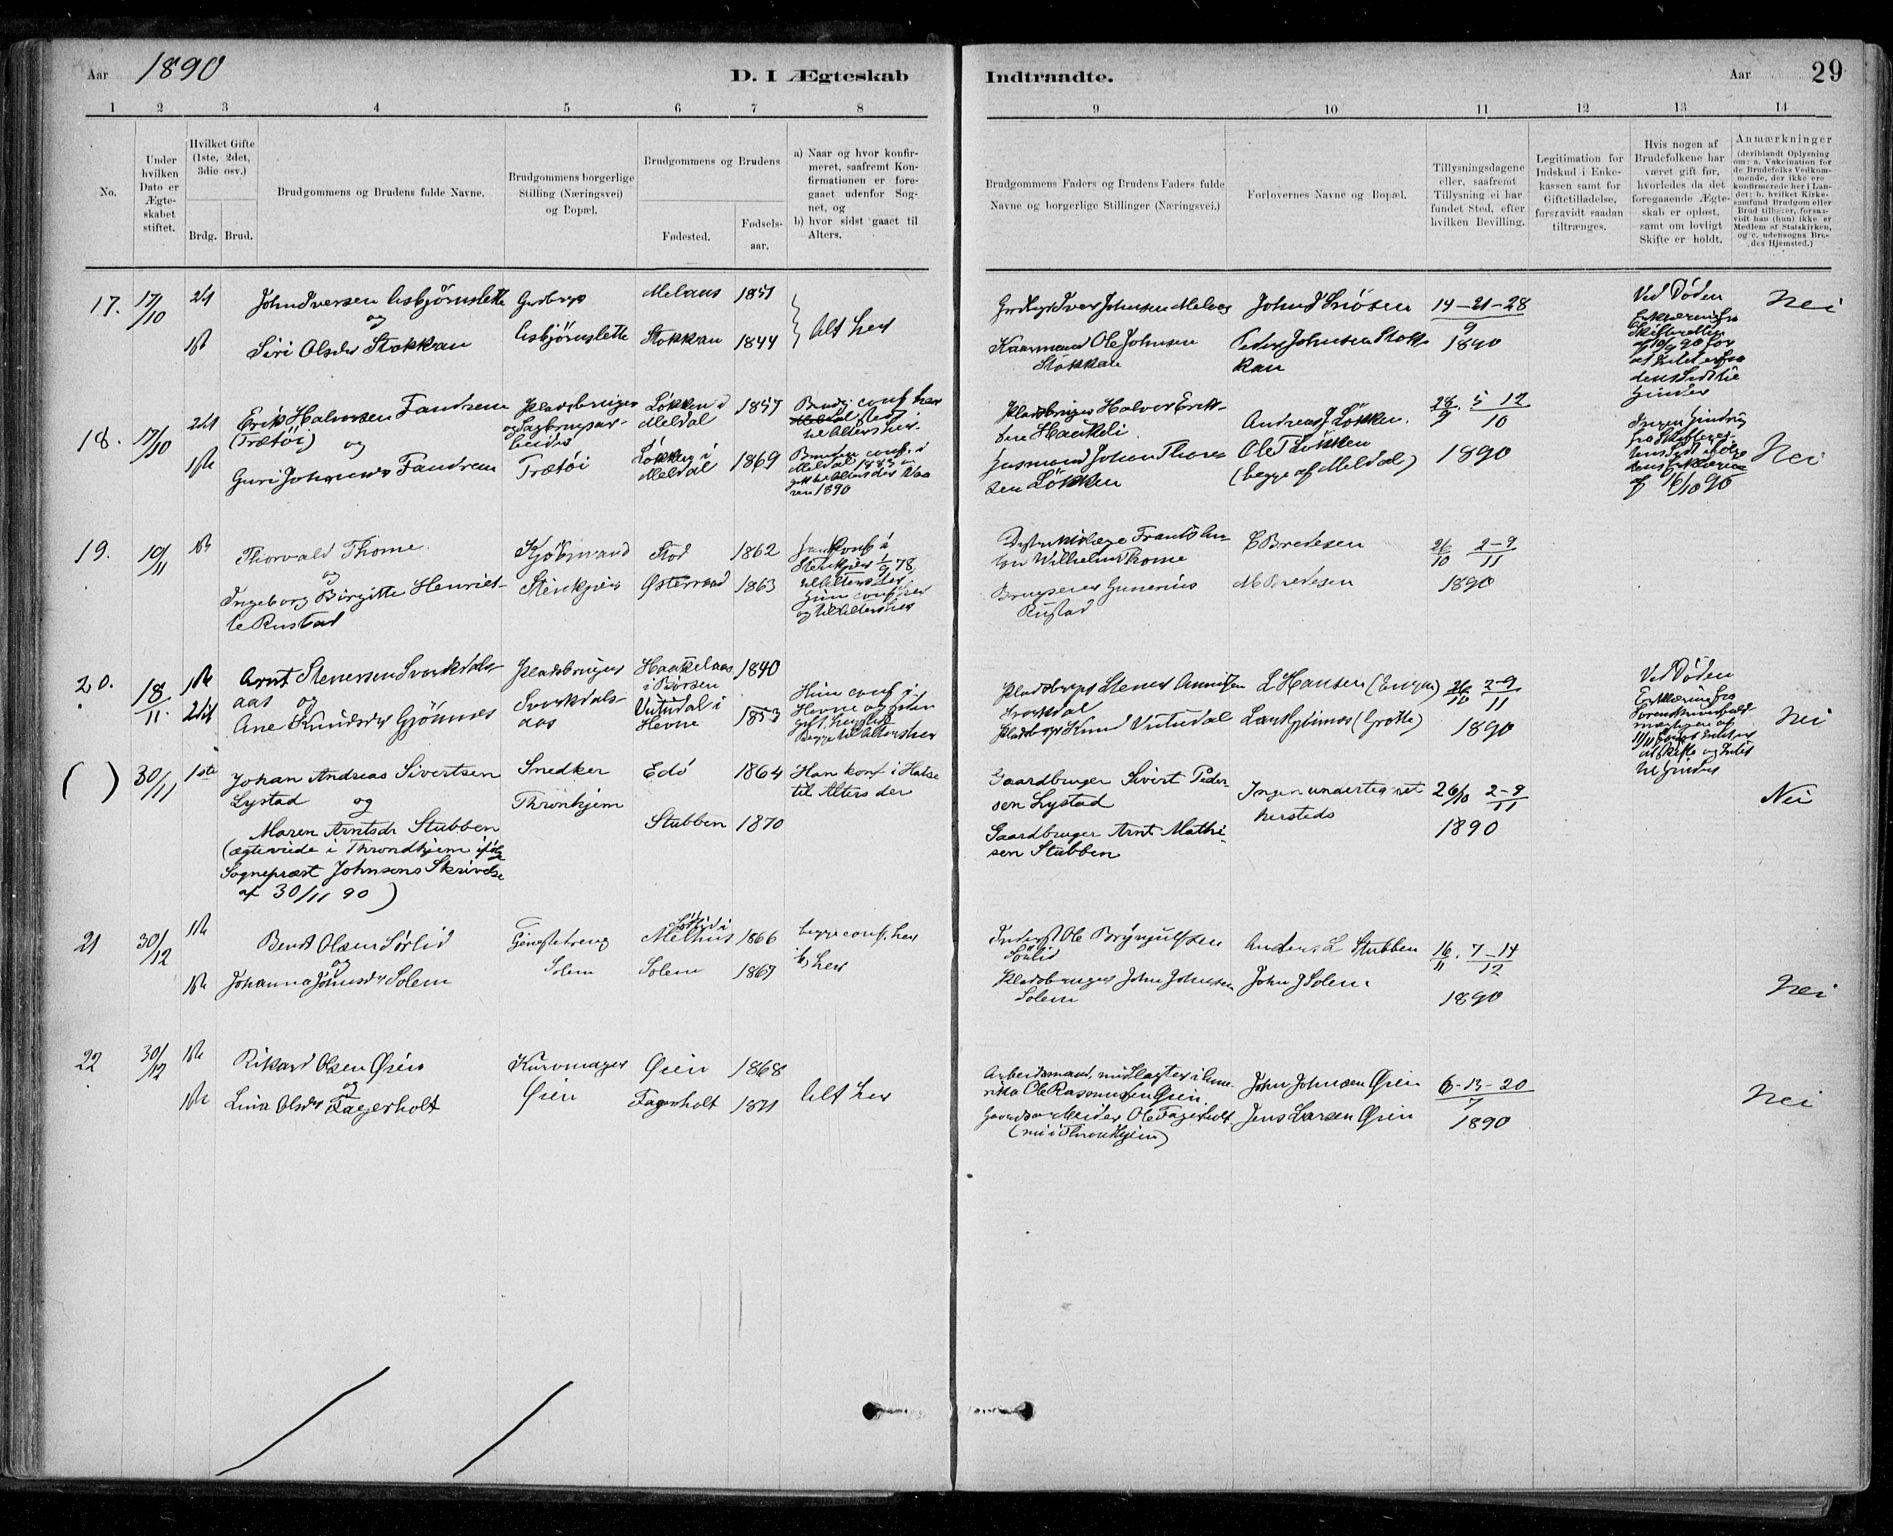 Aar 1890 D. I Ægteskab Indtraadte. Aar 29
1 2 3 4 5 6 7 8 9 10 11 12 13 14
No.
Under hvilken Dato er Ægteskabet stiftet.
Hvilket Gifte (1ste, 2det, 3die osv.)
Brdg. Brud.
Brudgommens og Brudens fulde Navne.
Brudgommens borgerlige Stilling (Næringsvei) og Bopæl.
Brudgommens og Brudens
Fødested.
Fødsels-aar.
a) Naar og hvor konfirmeret, saafremt Konfirmationen er foregaaet udenfor Sognet, og
b) hvor sidst gaaet til Alters.
Brudgommens Faders og Brudens Faders fulde Navne og borgerlige Stillinger (Næringsvei.)
Forlovernes Navne og Bopæl.
Tillysningsdagene eller, saafremt Tillysning ei har fundet Sted, efter hvilken Bevilling.
Legitimation for Indskud i Enkekassen samt for Giftetilladelse, forsaavidt saadan tiltrænges.
Hvis nogen af Brudefolkene har været gift før, hvorledes da det foregaaende Ægteskab er opløst, samt om lovligt Skifte er holdt.
Anmærkninger
(deriblandt Oplysning om: a. Vakcination for de Brudefolks Vedkommende, der ikke ere konfirmerede her i Landet; b. hvilket Kirkesamfund Brudgom eller Brud tilhører, forsaavidt han (hun) ikke er Medlem af Statskirken, og c. udensogns Brudes Hjemsted.)
17. 17/10 2det John Iversen Asbjørnslette Gardbrgr Melaas 1851
og
1ste Siri Olsdr Stokkan Asbjørnslette Stokkan 1844 Alt her
Grdbrgr Iver Johnsen Melaas John I Snøsen 14-21-28/9
Kaarmand Ole Johnsen Stokkan Peder Johnsen Stokkan 1890
Ved Døden
Erklæring fra Skifteretten af 10/9 90 for
Nei
18. 17/10 2det Erik Halvorsen Fandrem Pladsbruger Løkken i Meldal 1857
(Trætøi) og og Sagbrugsarbeider
1ste Guri Johnsdr Fandrem Trætøi Løkken i Meldal 1869
Brudg. conf. her
til Alters her.
Bruden conf. i Meldal 1883
1890
Pladsbruger Halvor Eriksen Haukeli Andreas J Løkken. 28/9. 5 12/10
Gusmand Johan Thoresen Løkken Ole T Løkken (begge af Meldal) 1890
16/10 90
Nei
19. 10/11 1ste Thorvald Thome Kjøbmand Stod 1862
og
Ingeborg Birgitte Henriette Rustad Stenkjær Østerraad 1863
conf i Stenkjær 1/9 78,
til Alters der
Hun conf her og til Alters her
Distriktslæge Frants Anton Wilhelm Thome E Bredesen 26/10 2-9/11
Brugseier Gunerius Rustad M Bredesen 1890
20. 18/11. 1ste Arnt Stenersen Svorkdals- Pladsbruger Haukelaas i Børsen 1840
aas og Svorkdals-
2det Ane Knudsdr Gjønnes aas Vutudal i Hevne 1853
Hun conf i Hevne og siden gift her
Begge til Alters her
Pladsbrgr Stener Arntsen Svorkdal L Hansen (Engen) 26/10 2-9/11
Pladsbrgr Knud Vutudal Lars Gjønnes (Grøtte) 1890
Ved Døden
Erklæring fra
Nei
( ) 30/11 1ste Johan Andreas Sivertsen Snedker Edø 1864 Han konf i Halse
Lystad og Thronhjem til Alters der
Maren Arntsdr Stubben Stubben 1870
(ægteviede i Throndhjem ifølge
Sognepræst Johnsens Skrivelse
af 30/11 90)
Gaardbruger Sivert Pedersen Lystad Ingen undertegnet hersteds 26/10 2-9/11
Gaardbruger Arnt Mathisen Stubben 1890
Nei
21 30/12 1ste Bendt Olsen Sørlid Gjæstedreng Sørlid i Melhus 1866 begge conf. her
og
1ste Johanna Johnsdr Solem Solem Solem 1867 b, her
Inderst Ole Brynjulfsen Sørlid Anders L Stubben 16/11. 7-14/12
Pladsbruger John Johnsen Solem John J Solem. 1890
Nei
22 30/12 1ste Rikard Olsen Øien Kurvmager Øien 1868
og
1ste Lina Olsdr Fagerholt Øien Fagerholt 1871 Alt her
Arbeidsmand, nu Slagter i Amerika Ole Rasmussen Øien John Johnsen Øien 6-13-20/7
Ole Fagerholt Jens Larsen Øien 1890
(nu i Thronhjem)
Nei